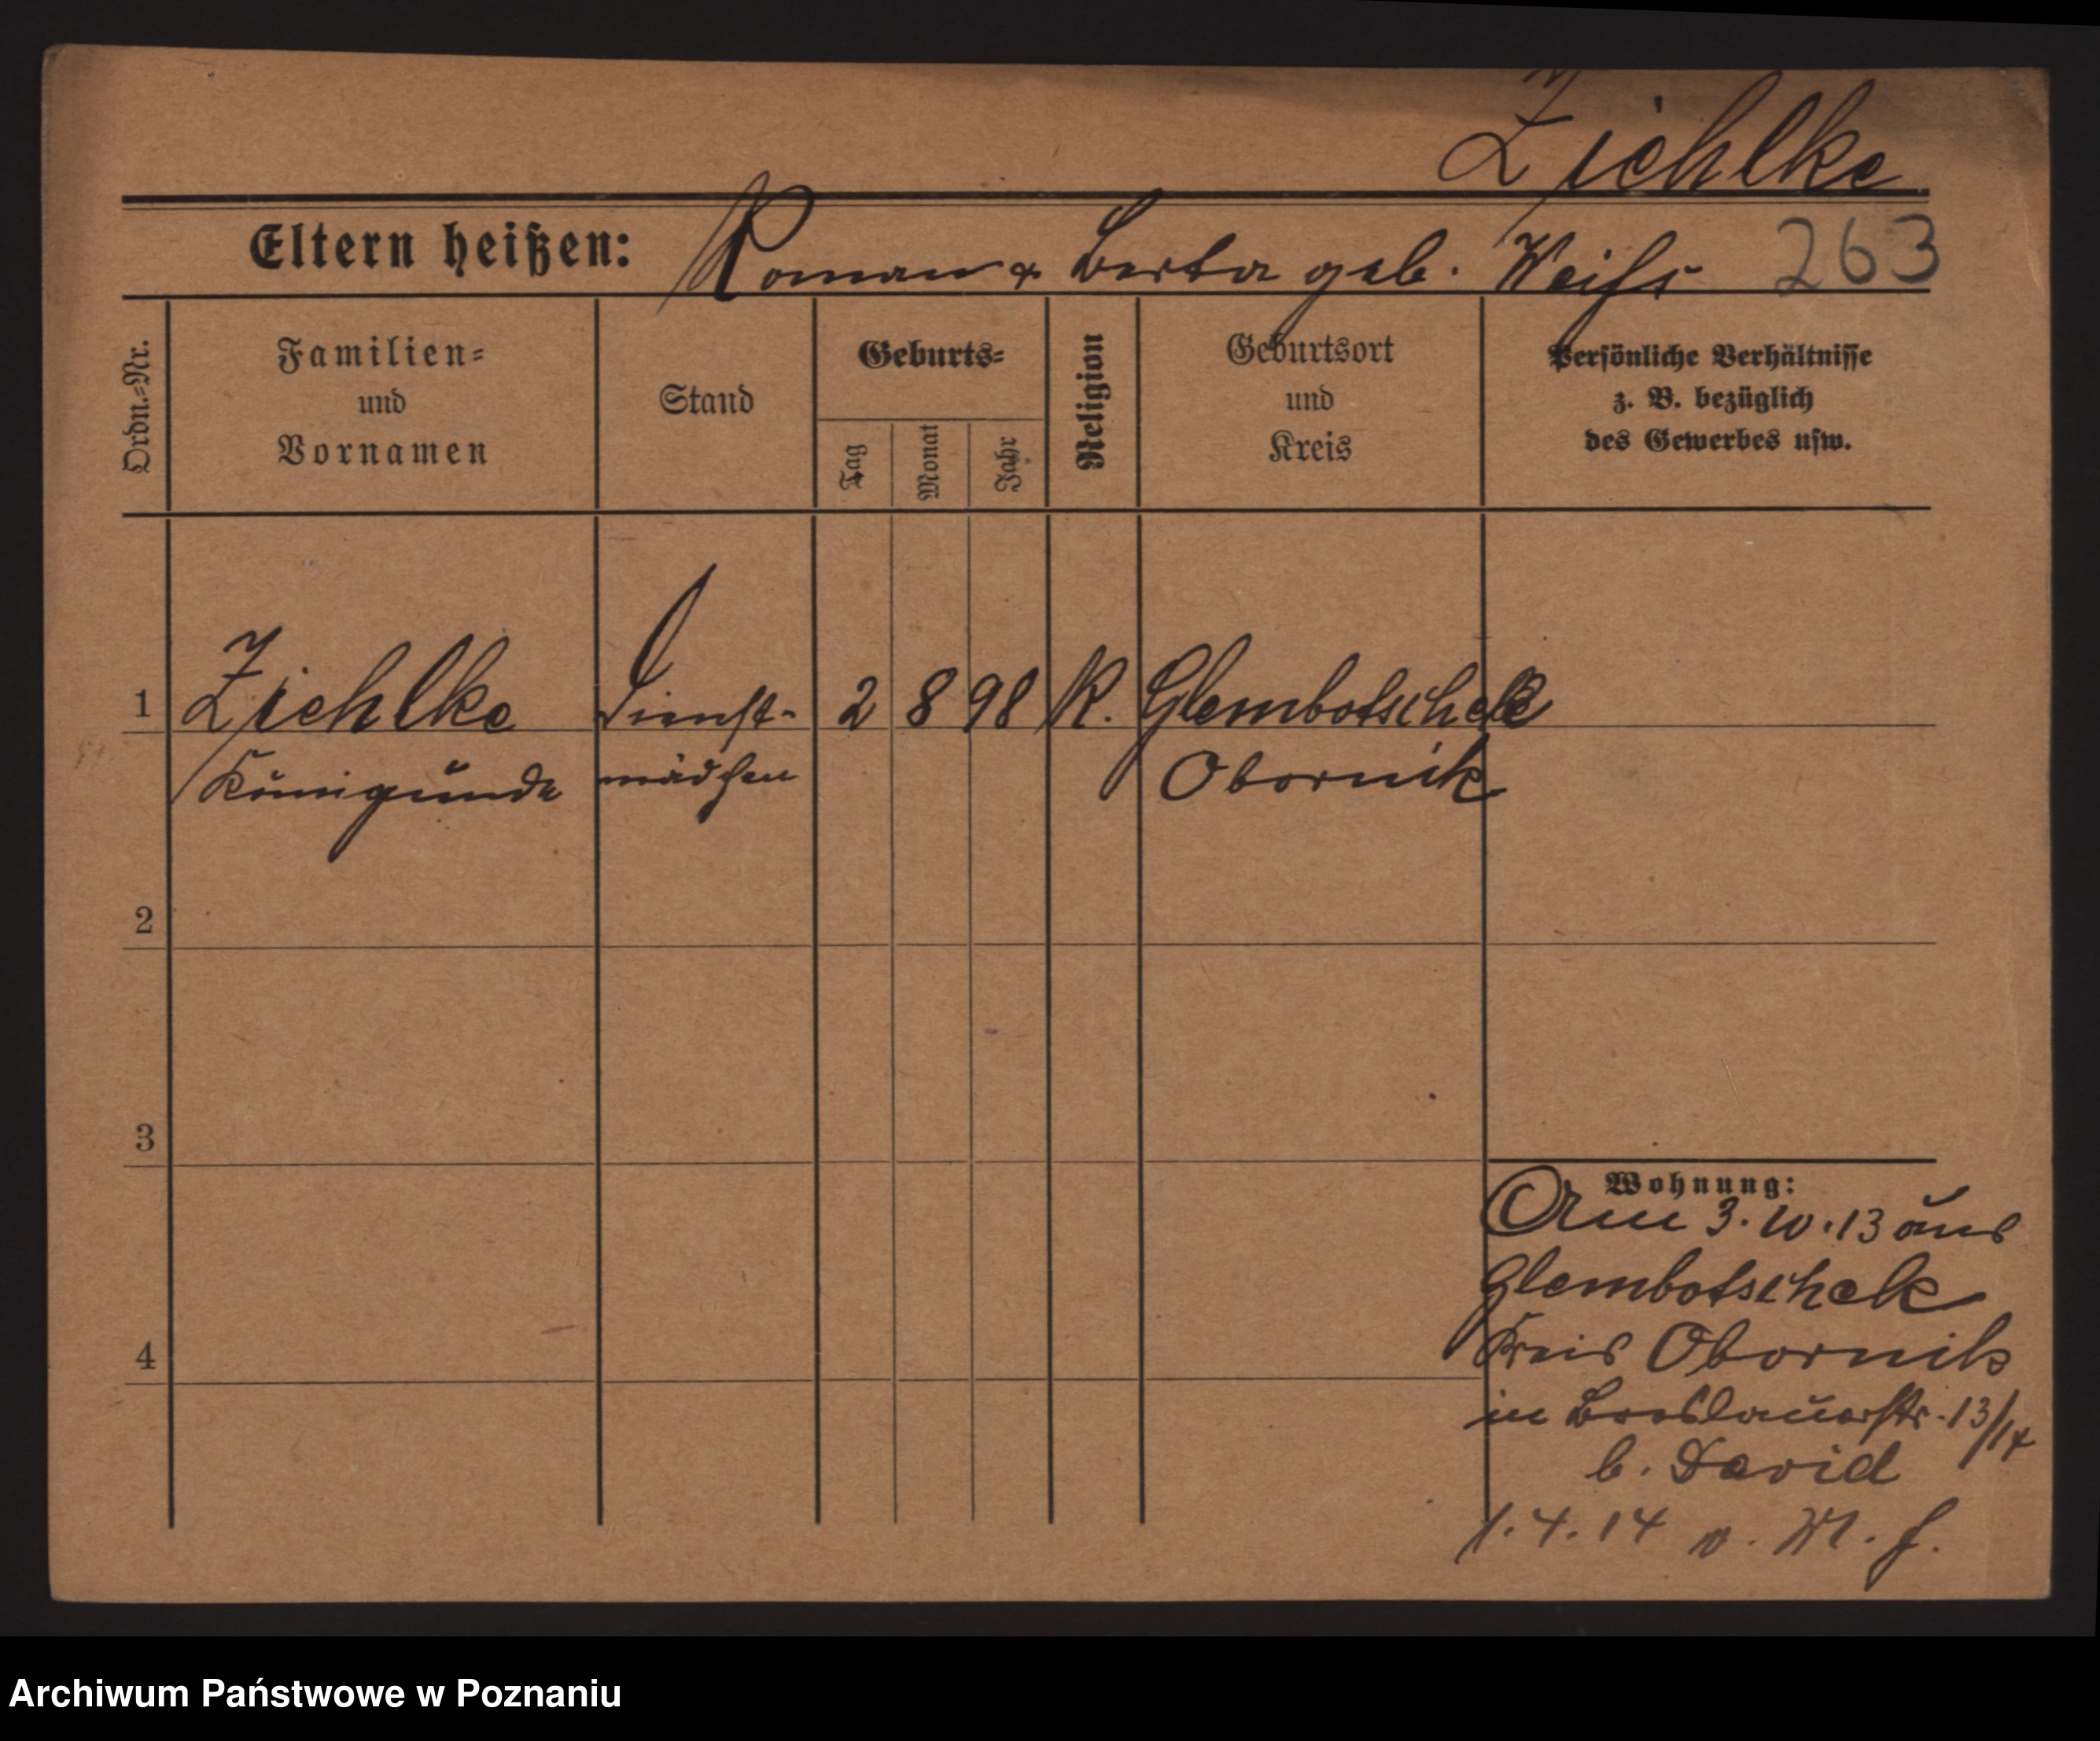 Ziehlke
Eltern heißen: Roman & Berta geb. Weiss 263
Ordn.=Nr.
Familien=
und
Vornamen
Stand
Geburts=
Tag
Monat
Jahr
Religion
Geburtsort
und
Kreis
Persönliche Verhältnisse
z. B. bezüglich
des Gewerbes usw.
1 Ziehlke Dienst- 2 8 98 K. Glembotschek
Kunigunde mädchen Obornik
2
3
4
Wohnung:
Am 3.10.13 aus
Glembotschek
Kreis Obornik
in Breslauerstr. 13/14
b. David
1.4.14 v. W. f.
Archiwum Państwowe w Poznaniu